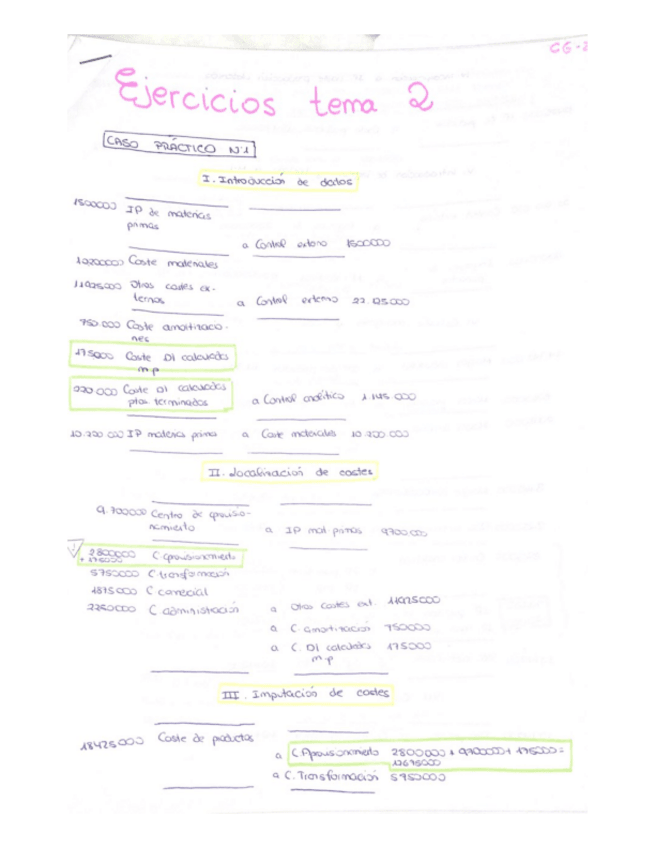 CG-2
Ejercicios tema 2
CASO PRÁCTICO Nº1
I. Introducción de datos
1500000 IP de materias
primas
a Control externo 1500000
10200000 Coste materiales
11925000 Otros costes ex-
ternos a Control externo 22.125.000
750.000 Coste amortizacio-
nes
175000 Coste DI calculados
mp
220.000 Coste DI calculados
ptos terminados a Control analítico 1.145.000
10.200.000 IP materia prima a Coste materiales 10.200.000
II. Localización de costes
9.700000 Centro de aprovisio-
namiento a IP mat primas 9700.000
2800000 C aprovisionamiento
+ 175000
5750000 C transformación
1875000 C comercial
2250000 C administración a Otros costes ext. 11925000
a C amortización 750000
a C. DI calculados 175000
m.p
III. Imputación de costes
18425000 Coste de productos
a C. Aprovisionamiento 2800000 + 9700000 + 175000 =
12675000
a C. Transformación 5750000